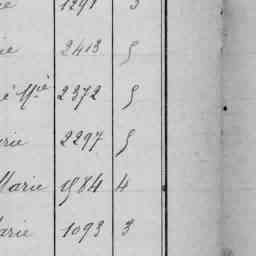 1291 3
ie 2413 5
é Mie 2372 5
rie 2297 5
Marie 1984 4
Marie 1093 3